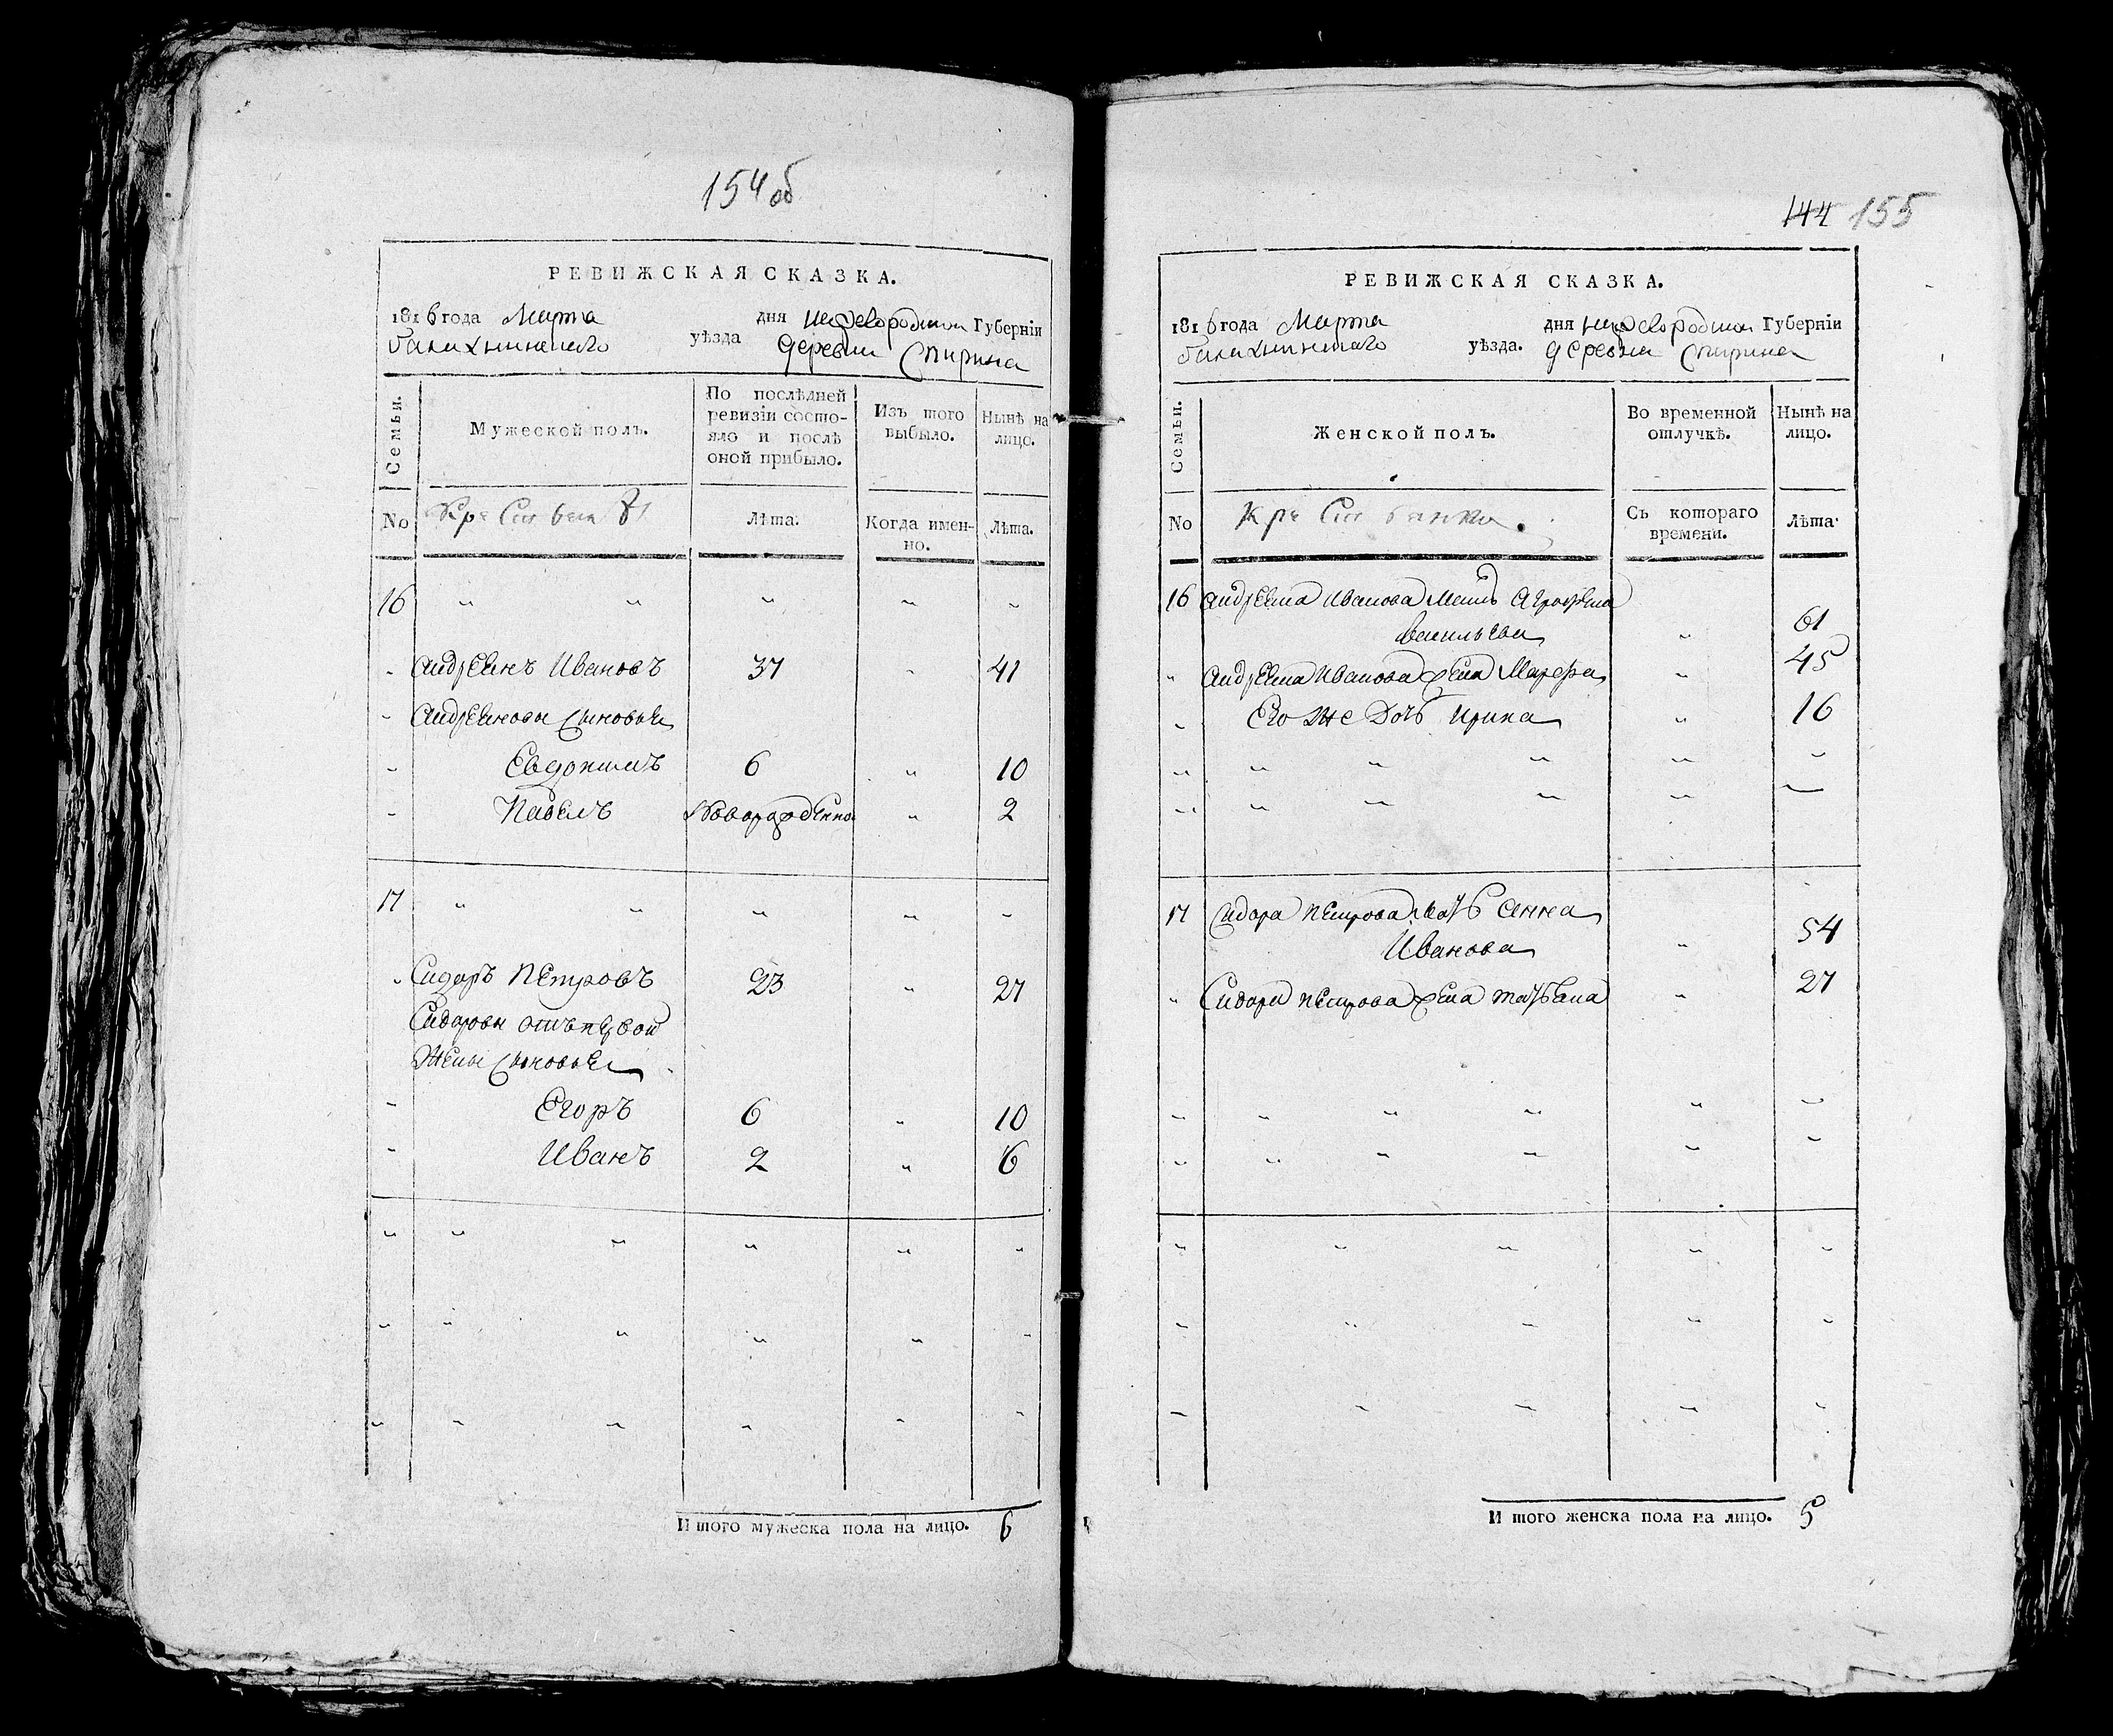 154 об
РЕВИЖСКАЯ СКАЗКА.
1816 года Марта дня нижегородской Губерніи
балахнинскаго уѣзда деревни Спирина
Семьи.
Мужеской полъ.
По послѣдней
ревизіи состо-
яло и послѣ
оной прибыло.
Изъ того
выбыло.
Нынѣ на
лицо.
No
Лѣта.
Когда имен-
но.
Лѣта.
16 " " " " "
" андреянъ Ивановъ 37 " 41
" андреяновы сыновья
" Евдокимъ 6 " 10
" Павелъ Новорожденной " 2
17 " " " " "
" Сидоръ Петровъ 23 " 27
Сидоровы отъ первой
Жены сыновья
" Егоръ 6 " 10
" Иванъ 2 " 6
" " " " " "
" " " " " "
" " " " " "
И того мужеска пола на лицо. 6
144 155
РЕВИЖСКАЯ СКАЗКА.
1816 года Марта дня нижегородской Губерніи
балахнинскаго уѣзда. деревни Спирина
Семьи.
Женской полъ.
Во временной
отлучкѣ.
Нынѣ на
лицо.
No
Съ котораго
времени.
Лѣта.
16 андреяна Иванова Мать Аграфена
васильева " 61
" андреяна Иванова жена Марфа " 45
" Его же Дочь Ирина " 16
" " " " " "
" " " " " "
17 Сидора Петрова мать анна
Иванова " 54
" Сидора Петрова жена татьяна " 27
" " " " " "
" " " " " "
" " " " "
" " " " "
" " " " "
И того женска пола на лицо. 5